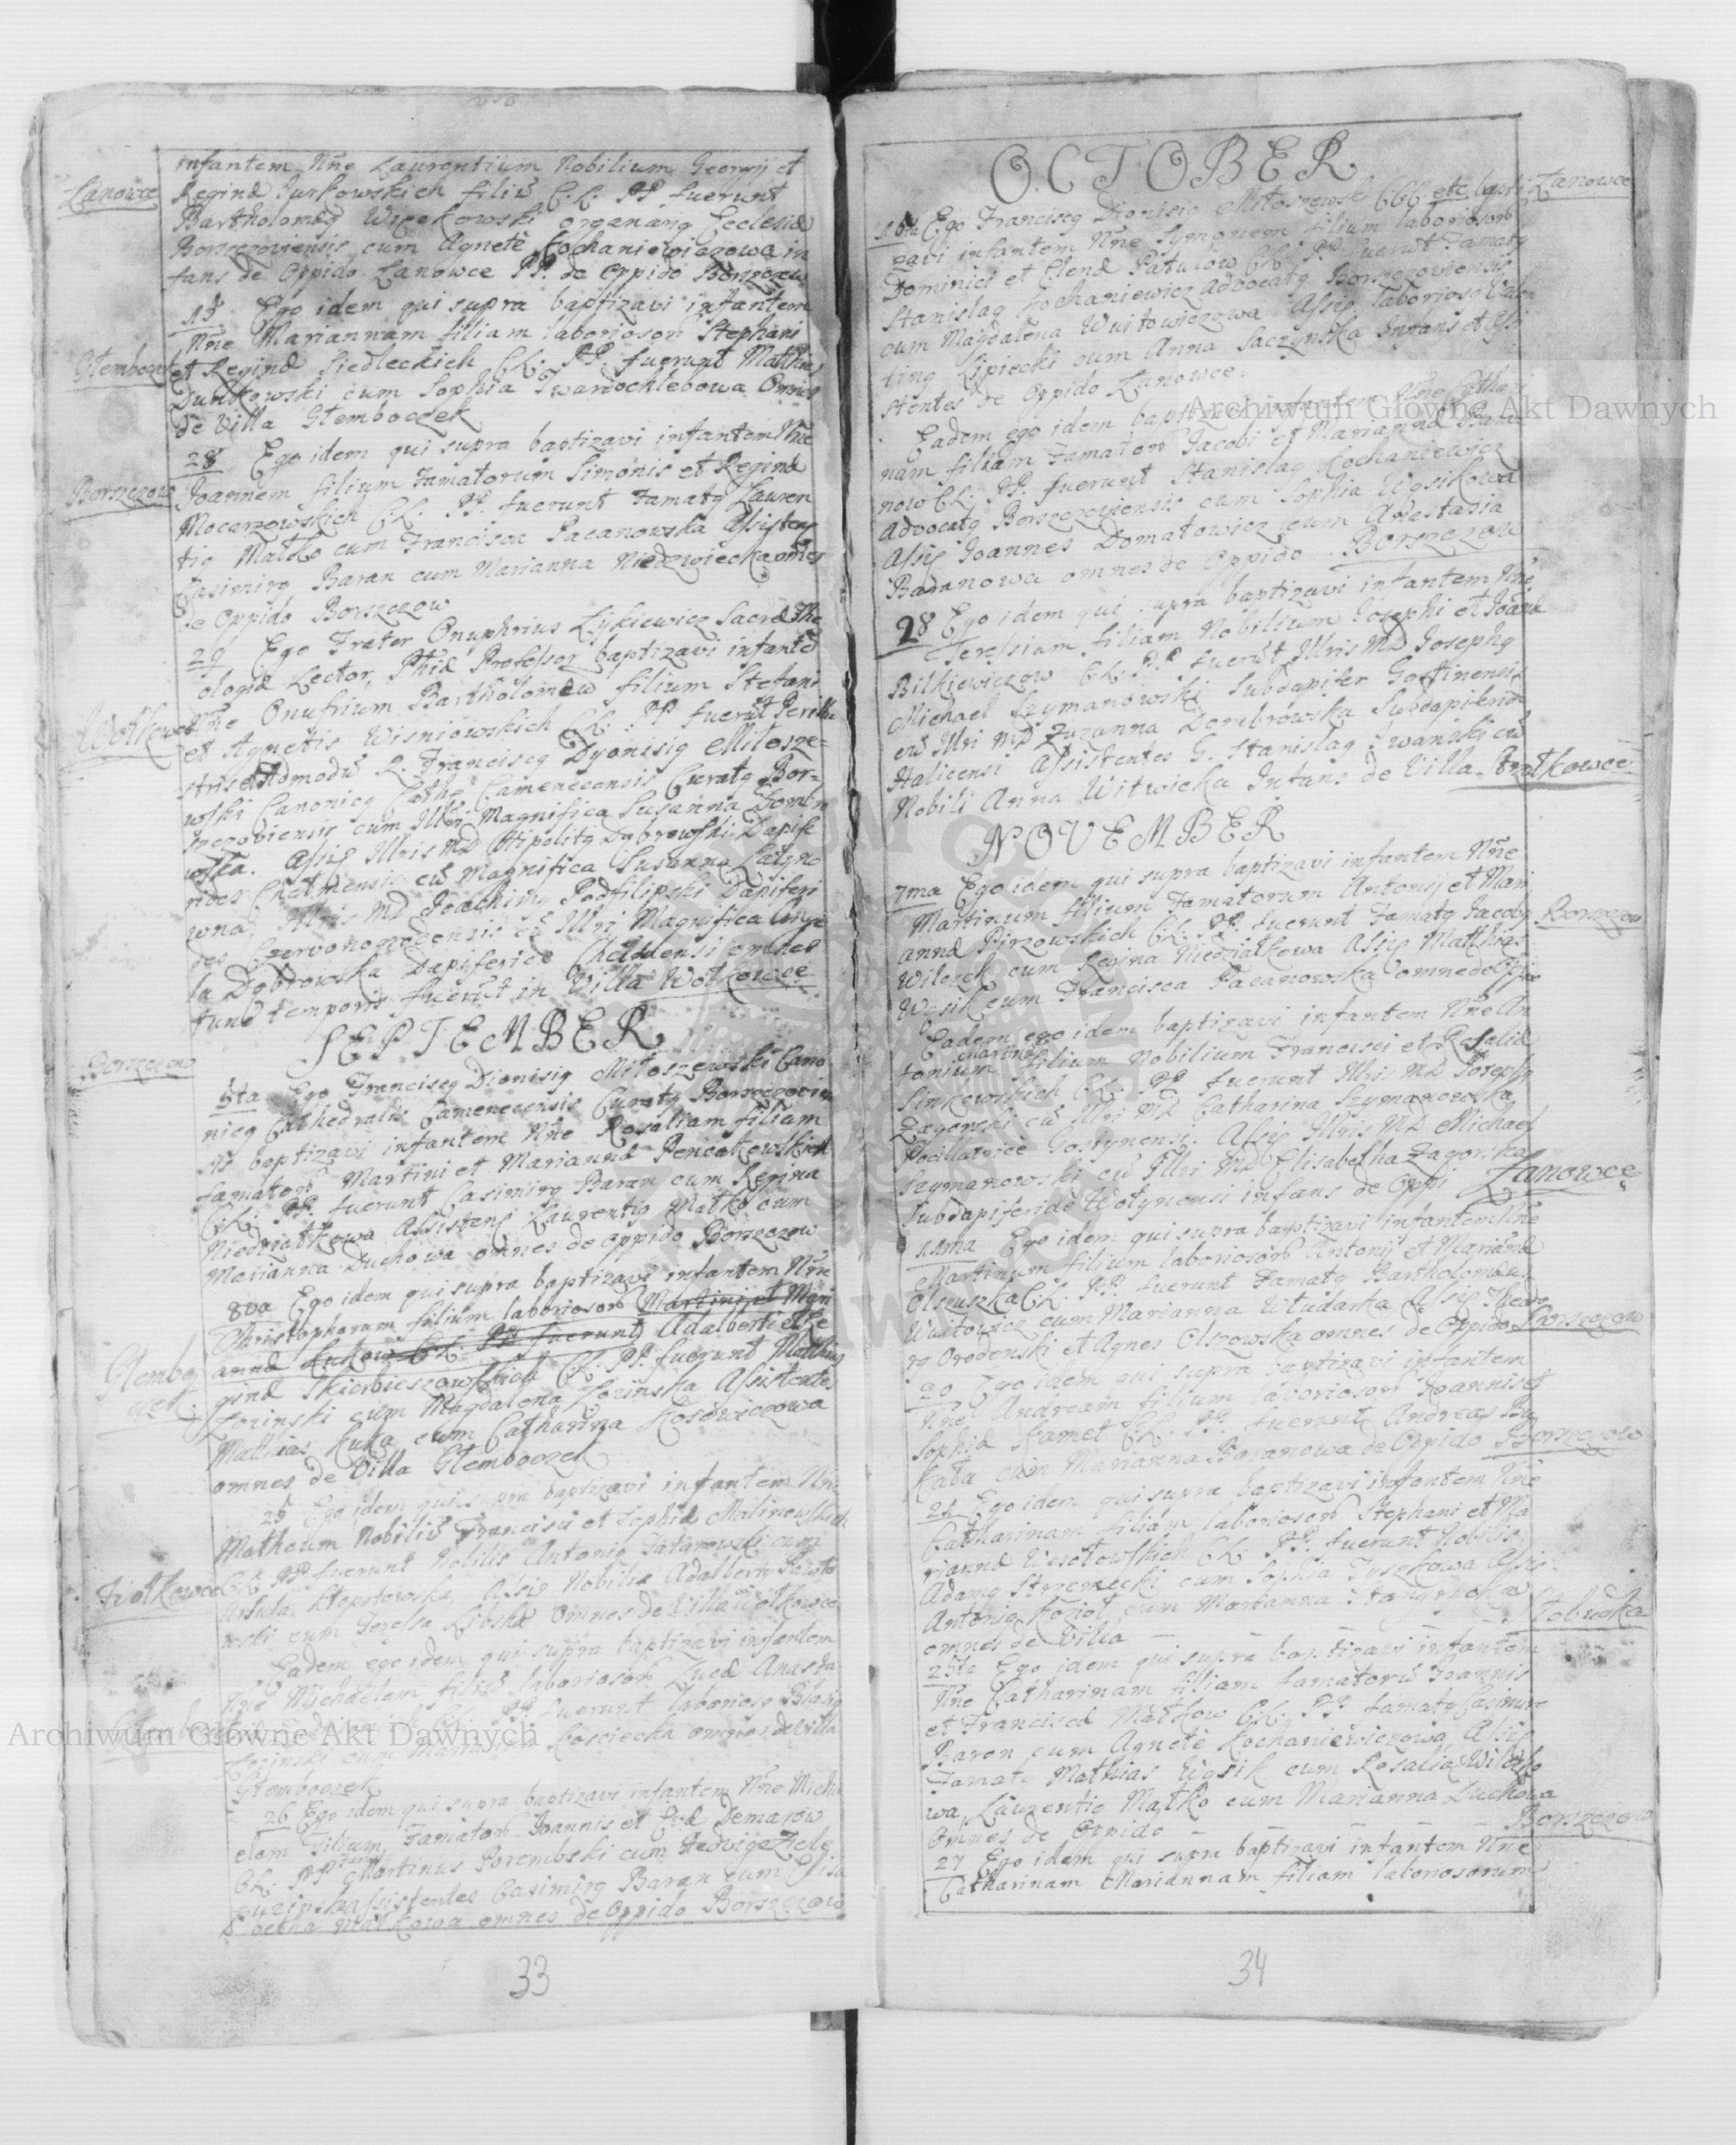 Lanowce
infantem Nne Laurentium Nobilium Georgij et
Reginæ Jurkowskich filiū C.L. PP. fuerunt
Bartholomeq Wicekowski organarq Ecclesiæ
Borszczoviensis cum Agnete Kochaniewiczowa in
fans de Oppido Lanowce PP. de Oppido Borszczow
15 Ego idem qui supra baptizavi infantem
Nne Mariannam filiam laboriosor Stephani
Glemboczek
et Reginæ Siedleckich CL: PP. fuerunt Matthias
Dutkowski cum Sophia Twardochlebowa Omnes
de Villa Glemboczek
28 Ego idem qui supra baptizavi infantem Nne
Borszczow
Joannem filium Famatorum Simonis et Reginæ
Mocarzowskich CL. PP. fuerunt Famatq Lauren
tiq Matko cum Francisca Pacanowska Assistens
Casimirq Baran cum Marianna Niedzwiecka omnes
de Oppido Borszczow
29 Ego Frater Onuphrius Zykiewicz Sacræ The
ologiæ Lector, Phiæ Professor baptizavi infantē
Wolkowce
Nne Onufrium Bartholomæū filium Stefani
et Agnetis Wisniowskich CL. PP. fuerūt Perillu
stris et Admodū R. Franciscq Dyonisiq Milosze=
wski Canonicq Cathe Camenecensis Curatq Bor=
szczoviensis cum Illri Magnifica Susanna Domb
wska. Assis Illris MD Hipolitq Dąbrowski Dapife
rides Chelmensis cū Magnifica Susanna
wna, Illris MD Joachimq Podfilipski Dapiferi
des Czerwonogrodensis cū Illri Magnifica Ange
la Dąbrowska Dapiferide Chelmensi omnes
tunc temporis fuerūt in Villa Wolkowce
SEPTEMBER
Borszczow
5ta Ego Franciscq Dionisiq Miloszewski Cano
nicq Cathedralis Camenecensis Curatq Borszczovien
sis baptizavi infantem Nne Rosaliam filiam
Famator Martini et Mariannæ Pencakowskich
CL: PP. fuerunt Casimirq Baran cum Regina
Niedzialkowa Assistens Laurentiq Matko cum
Marianna Duchowa omnes de Oppido Borszczow
8va Ego idem qui supra baptizavi infantem Nne
Christophorum filium laboriosor Martini et Mari
annæ Lukow CL. PP. fuerunt Adalberti et Re
Glembo
czek
ginæ Skierbieszowskich CL. PP. fuerunt Matthias
Lozinski cum Magdalena Lozinska Assistentes
Matthias Kuka cum Catharina Kosowiczowa
omnes de Villa Glemboczek
25 Ego idem qui supra baptizavi infantem Nne
Matheum Nobiliū Francisci et Sophiæ Malinowskich
CL. PP. fuerunt Nobilis Antoniq cum
Wolkowce
Ursula Assis Nobilis Adalbertq
wski cum Teressa omnes de Villa Wolkowce
Eadem ego idem qui supra baptizavi infantem
Nne Michaelem filiū laboriosor Lucæ Anasta
PP. fuerunt laboriosq Blasiq
Lozinski cum Marianna omnes de Villa
Glemboczek
26 Ego idem qui supra baptizavi infantem Nne Micha
elem Filium Famator Joannis et Evæ Demarow
CL. PP. Famatq Martinus Porembski cum Hedvige
Assistentes Casimirq Baran cum Elisa
betha Matkowa omnes de Oppido Borszczow
33
OCTOBER
16ta Ego Franciscq Dionisiq Miloszewski CCC etc bapti
Lanowce
zavi infantem Nne Symonem filium laboriosor
Dominici et Elenæ Patulow CL. PP. fuerūt Famatq
Stanislaq Kochaniewicz Advocatq Borszczoviensis
cum Magdalena Wuitowiczowa Assis laboriosq Valen
tinq Lipiecki cum Anna Saczynska Infans et Assi
stentes de Oppido Lanowce.
Eadem ego idem baptizavi infantem Nne Cathari
nam filiam Famator Jacobi et Mariannæ
now CL: PP. fuerunt Stanislaq Kochaniewicz
Advocatq Borszczoviensis cum Sophia Wąsikowa
Assis Joannes Domatowicz cum Anastasia
Baranowa omnes de Oppido Borszczow
28 Ego idem qui supra baptizavi infantem Nne
Teressiam filiam Nobilium Josephi et Joannæ
Bilkiewiczow CL. PP fuerūt Illris MD Josephq
Michael Szymanowski Subdapifer Gostinensis
cū Illri MD Zuzanna Dombrowska Subdapiferide
Halicensi Assistentes G. Stanislaq Iwanski cū
Nobili Anna Witwicka Infans de Villa Wolkowce
NOVEMBER
7ma Ego idem qui supra baptizavi infantem Nne
Martinum filium Famatorum Antonij et Mari
annæ Pirzowskich CL. PP. fuerunt Famatq Jacobq
Borszczow
Wilczek cum Regina Niedzialkowa Assis Matthias
Wąsik cum Francisca Pacanowska omnes de Oppido
Eadem ego idem baptizavi infantem Nne An
tonium Martinū filium Nobilium Francisci et Rosaliæ
Sinkowskich CL. PP. fuerunt Illris MD Josephq
Zagorski cū Illri MD Catharina Szymanowska
Pocillatrice Gostynensi. Assis Illris MD Michael
Szymanowski cū Illri MD Elisabetha Zagorska
Subdapiferide Wolynensi infans de Oppi Lanowce
11ma Ego idem qui supra baptizavi infantem Nne
Martinum filium laboriosor Antonij et Mariannæ
Olszuszka CL. PP. fuerunt Famatq Bartholomæus
Wuitowicz cum Marianna Wludarka Assis Theodo
rq Orodenski et Agnes Olszowska omnes de Oppido Borszczow
20 Ego idem qui supra baptizavi infantem
Nne Andream filium laboriosor Joannis et
Sophiæ Kamet CL. PP. fuerunt Andreas Bu
kata cum Marianna Baranowa de Oppido Borszczow
21 Ego idem qui supra baptizavi infantem Nne
Catharinam filiam laboriosor Stephani et Ma
riannæ Wesolowskich CL. PP. fuerunt Nobilis
Adamq Strzemecki cum Sophia Tysekowa Assis
Antoniq Koziol cum Marianna
omnes de Villa Lobudka
25ta Ego idem qui supra baptizavi infantem
Nne Catharinam filiam Famatorū Joannis
et Franciscæ Matkow CL. PP. Famatq Casimirq
Baran cum Agnete Kochaniewiczowa Assis
Famatq Mathias Wąsik cum Rosalia Wilczko
wa, Laurentiq Matko cum Marianna Duchowa
Omnes de Oppido Borszczow
27 Ego idem qui supra baptizavi infantem Nne
Catharinam Mariannam filiam laboriosorum
34
Archiwum Główne Akt Dawnych
Archiwum Główne Akt Dawnych